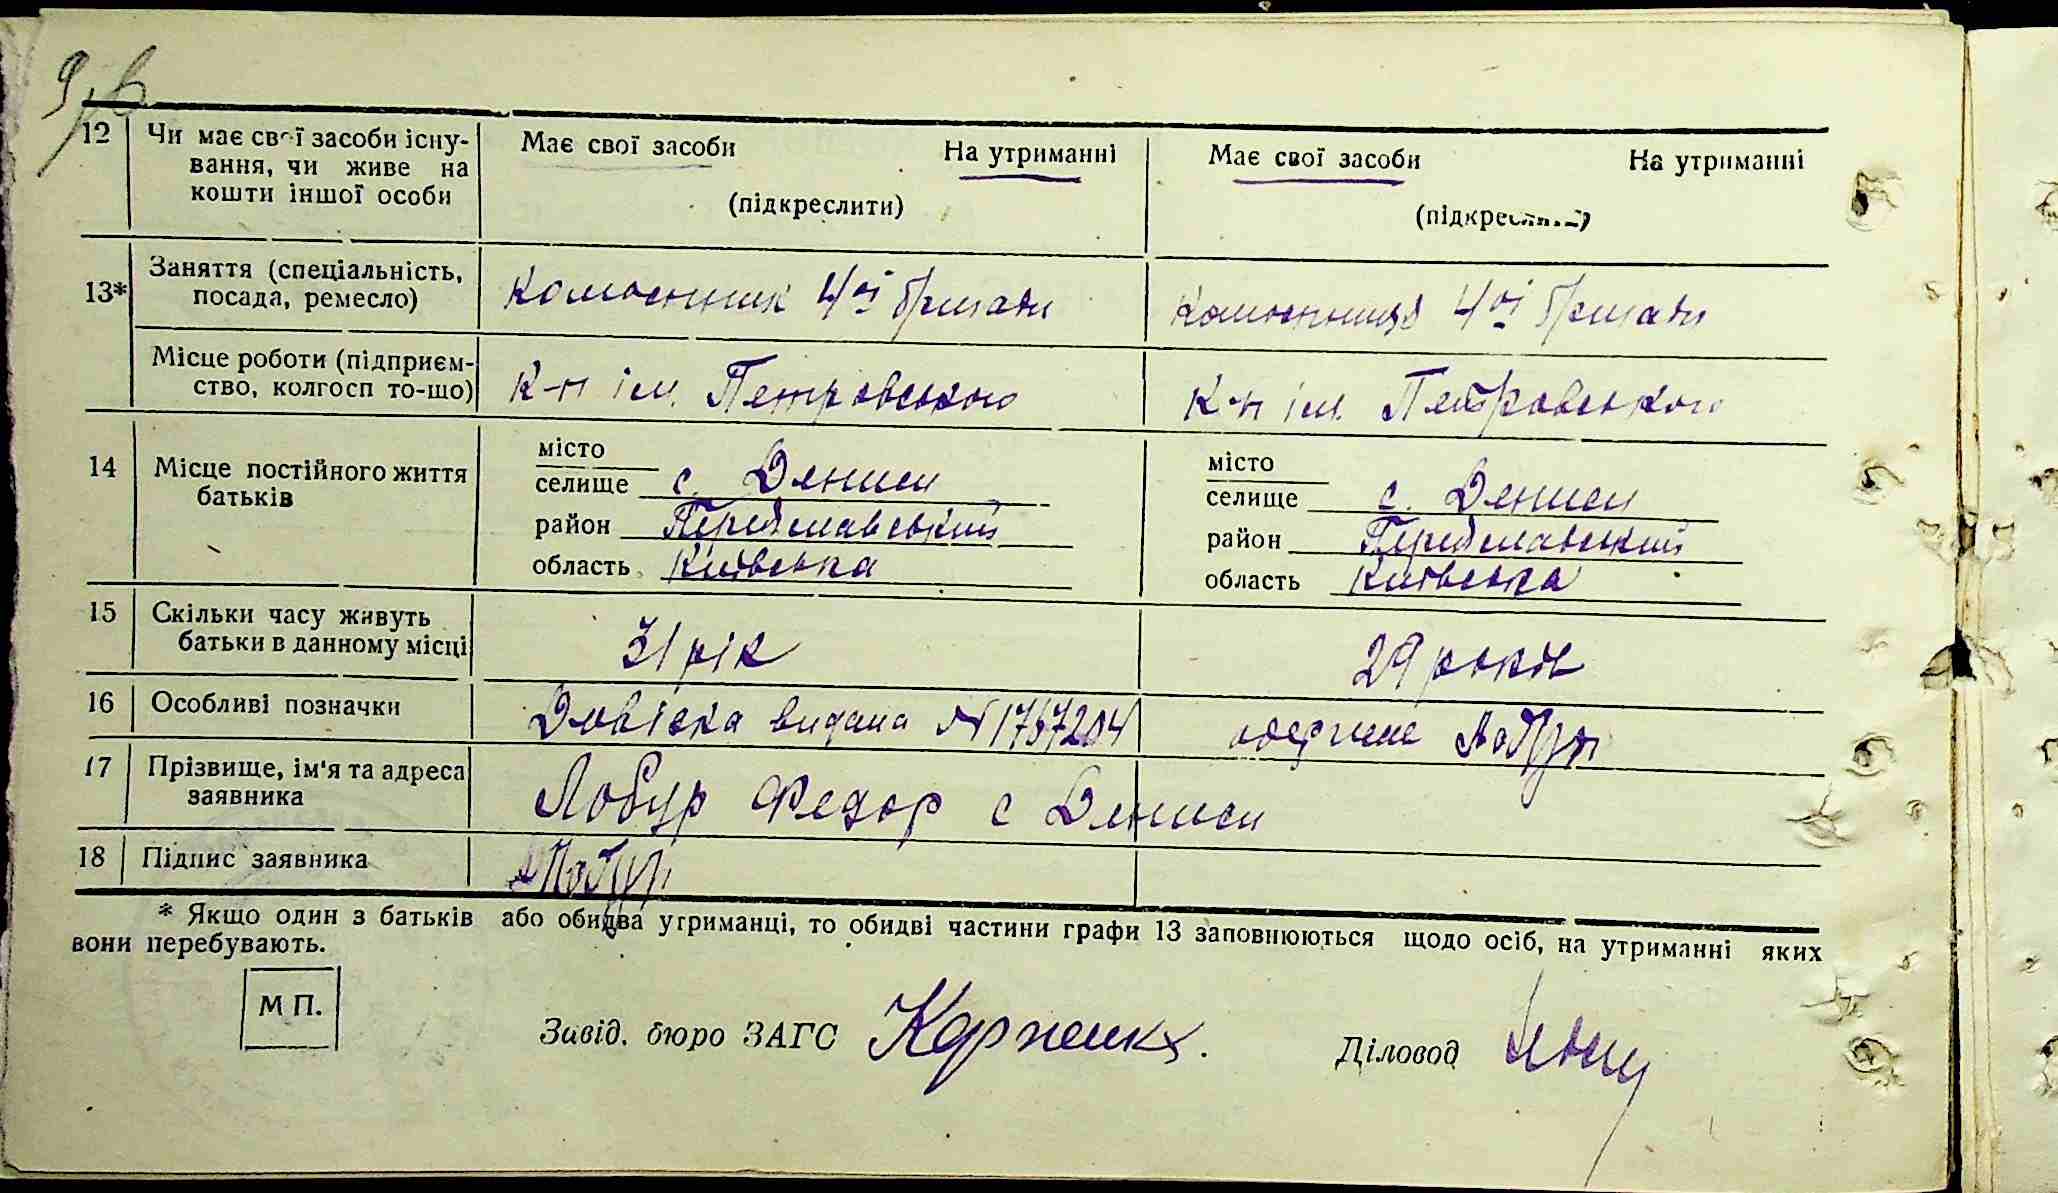 9
12 Чи має свої засоби існу-
вання, чи живе на
кошти іншої особи
Має свої засоби На утриманні
(підкреслити)
Має свої засоби На утриманні
(підкреслити)
13* Заняття (спеціальність,
посада, ремесло)
Колгоспник 4ої бригади
Колгоспниця 4ої бригади
Місце роботи (підприєм-
ство, колгосп то-що)
К-п ім. Петровського
К-п ім. Петровського
14 Місце постійного життя
батьків
місто
селище с. Дениси
район Переяславський
область Київська
місто
селище с. Дениси
район Переяславський
область Київська
15 Скільки часу живуть
батьки в данному місці
31 рік
29 років
16 Особливі позначки
Довідка видана №1767204
одержав Лобур
17 Прізвище, ім'я та адреса
заявника
Лобур Федор с Дениси
18 Підпис заявника
Лобур
* Якщо один з батьків або обидва утриманці, то обидві частини графи 13 заповнюються щодо осіб, на утриманні яких
вони перебувають.
М П.
Завід. бюро ЗАГС Карпенко.
Діловод